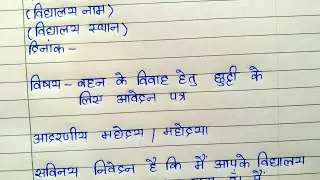 (विद्यालय नाम)
(विद्यालय स्थान)
दिनांक-
विषय- बहन के विवाह हेतु छुट्टी के
लिए आवेदन पत्र
आदरणीय महोदय / महोदया
सविनय निवेदन है कि मैं आपके विद्यालय